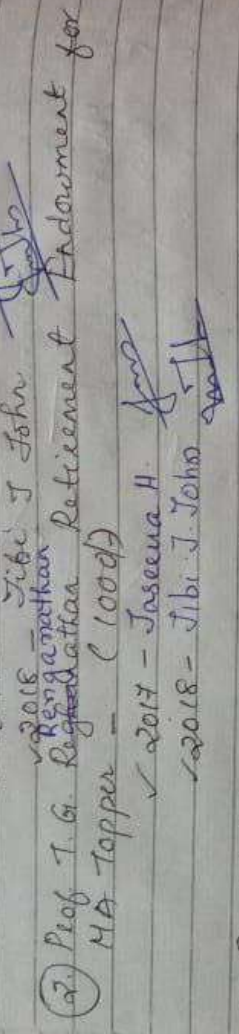 ✓2018 - Jibi J John
Renganathan
(2.) Prof T.G. Retirement Endowment for
MA Topper - (1000/-)
✓ 2017 - Jaseena H.
✓2018 - Jibi J. John